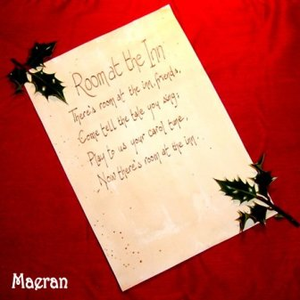 Room at the Inn
There's room at the inn, friends,
Come tell the tale you sing,
Play to us your carol tune,
Now there's room at the inn.
Maeran